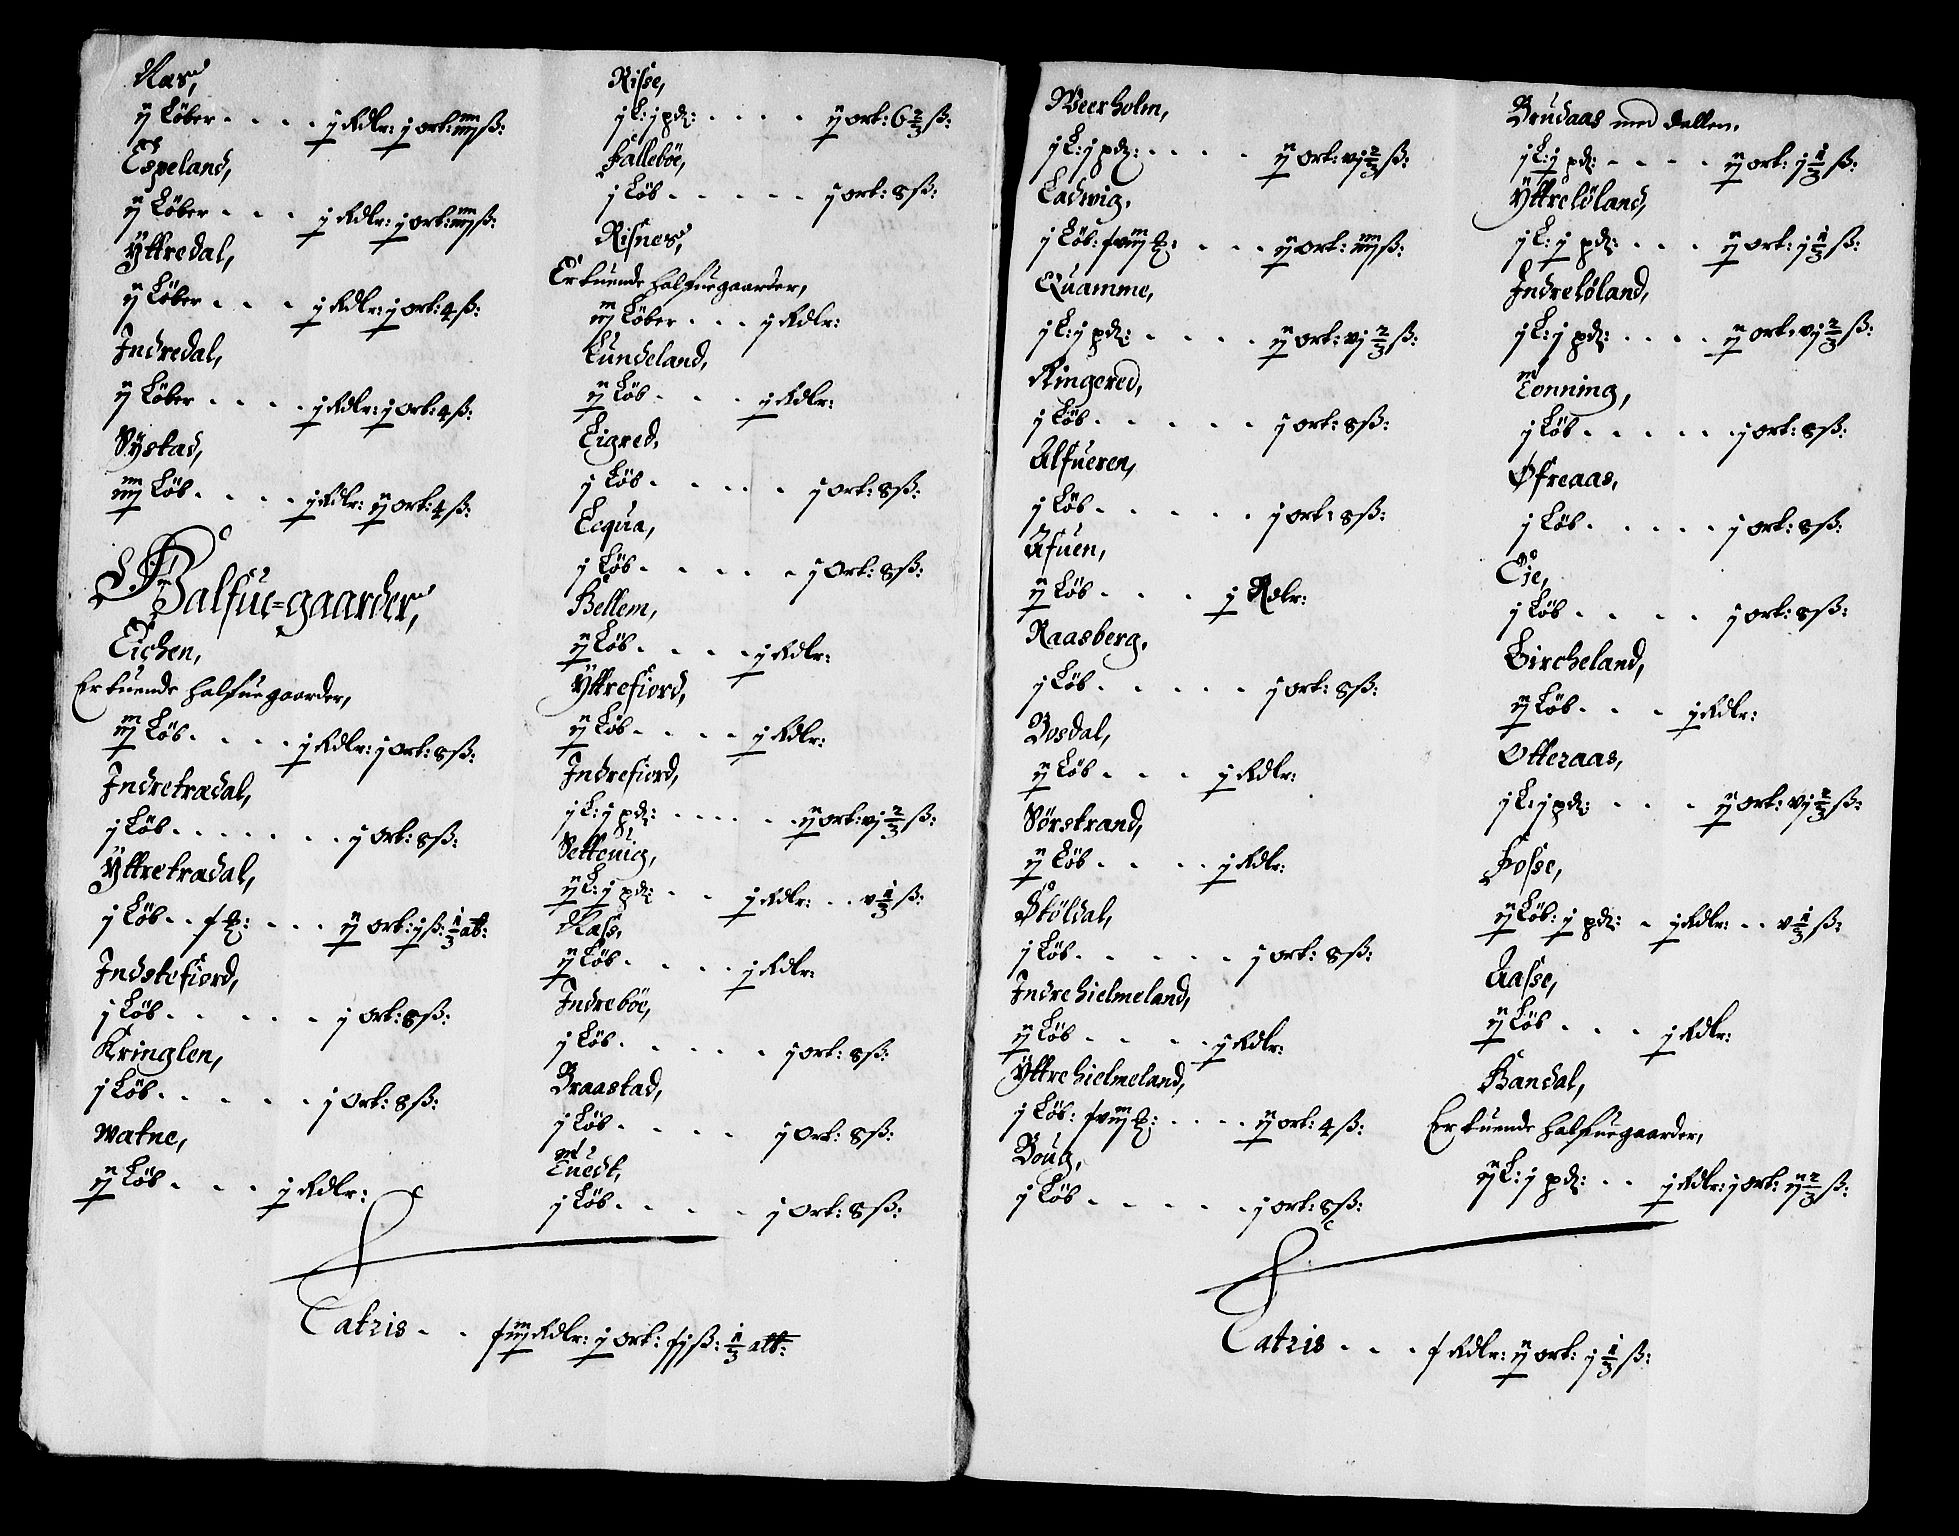 Aas,
ij Löber . . . . j Rdlr: j ort: iiij ß:
Espeland,
ij Löber . . . j Rdlr: j ort: iiij ß:
Ÿttredal,
ij Löber . . . j Rdlr: j ort: 4 ß:
Indredal,
ij Löber . . . . j Rdlr: j ort: 4 ß:
Systad,
iiij Löb . . . . j Rdlr: ij ort: 4 ß:
Halfue-gaarder,
Eichen,
Er tuende halfue gaarder,
iij Löb . . . . j Rdlr: j ort: 8 ß:
Indretradal,
j Löb . . . . . . . j ort: 8 ß:
Ÿttretradal,
j Löb . . . . . ij ort: j ß: 1/3 alb:
Indstefiord,
j Löb . . . . . j ort: 8 ß:
Kringlen,
j Löb . . . . . j ort: 8 ß:
Watne,
ij Löb . . . j Rdlr:
Risse,
j L: j pd: . . . . ij ort: 6 2/3 ß:
Falleböe,
j Löb . . . . . j ort: 8 ß:
Risnes,
Er tuende halfue gaarder,
iij Löber . . . j Rdlr:
Lundeland,
ij Löb . . . j Rdlr:
Eigred,
j Löb . . . . . j ort: 8 ß:
Ecqua,
j Löb . . . . . j ort: 8 ß:
Hellem,
ij Löb . . . . j Rdlr:
Ÿttrefiord,
ij Löb . . . . j Rdlr:
Indrefiord,
j L: j pd: . . . . . . ij ort: vj 2/3 ß:
Settenig,
ij L: j pd: . . j Rdlr: . . v 1/3 ß:
Aass,
ij Löb . . . . j Rdlr:
Indreböe,
j Löb . . . . . j ort: 8 ß:
Braastad,
j Löb . . . . j ort: 8 ß:
Tuedt,
j Löb . . . . j ort: 8 ß:
Latris . . Rdlr: j ort: ß: 1/3 alb:
Weerholm,
j L: j pd: . . . . ij ort: vj 2/3 ß:
Ladwig,
j Löb: . . . ij ort: iiij ß:
Quamme,
j L: j pd: . . . . ij ort: vj 2/3 ß:
Ringered,
j Löb . . . . . j ort: 8 ß:
Alfueren,
j Löb . . . . . j ort: 8 ß:
Afuen,
ij Löb . . . j Rdlr:
Raasberg,
j Löb . . . . . j ort: 8 ß:
Bosdal,
ij Löb . . . j Rdlr:
Sörstrand,
ij Löb . . . . j Rdlr:
Sköldal,
j Löb . . . . . j ort: 8 ß:
Indrehielmeland,
ij Löb . . . . j Rdlr:
Ÿttrehielmeland,
j Löb: . . . . ij ort: 4 ß:
Boug,
j Löb . . . . . j ort: 8 ß:
Brudaas med dallen,
j L: j pd: . . . . ij ort: j 1/3 ß:
Ÿttrelöland,
j L: j pd: . . . ij ort: j 1/3 ß:
Indrelöland,
j L: j pd: . . . . ij ort: vj 2/3 ß:
Tonning,
j Löb . . . . . j ort: 8 ß:
Øfreaas,
j Löb . . . . . j ort: 8 ß:
Eje,
j Löb . . . . j ort: 8 ß:
Bircheland,
ij Löb . . . j Rdlr:
Otteraas,
j L: j pd: . . . ij ort: vj 2/3 ß:
Fosse,
ij Löb: j pd: . j Rdlr: . . v 1/3 ß:
Aasse,
ij Löb . . . j Rdlr:
Handal,
Er tuende halfue gaarder,
ij L: j pd: . . j Rdlr: j ort: ij 2/3 ß:
Latris . . . Rdlr: ij ort: j 1/3 ß: